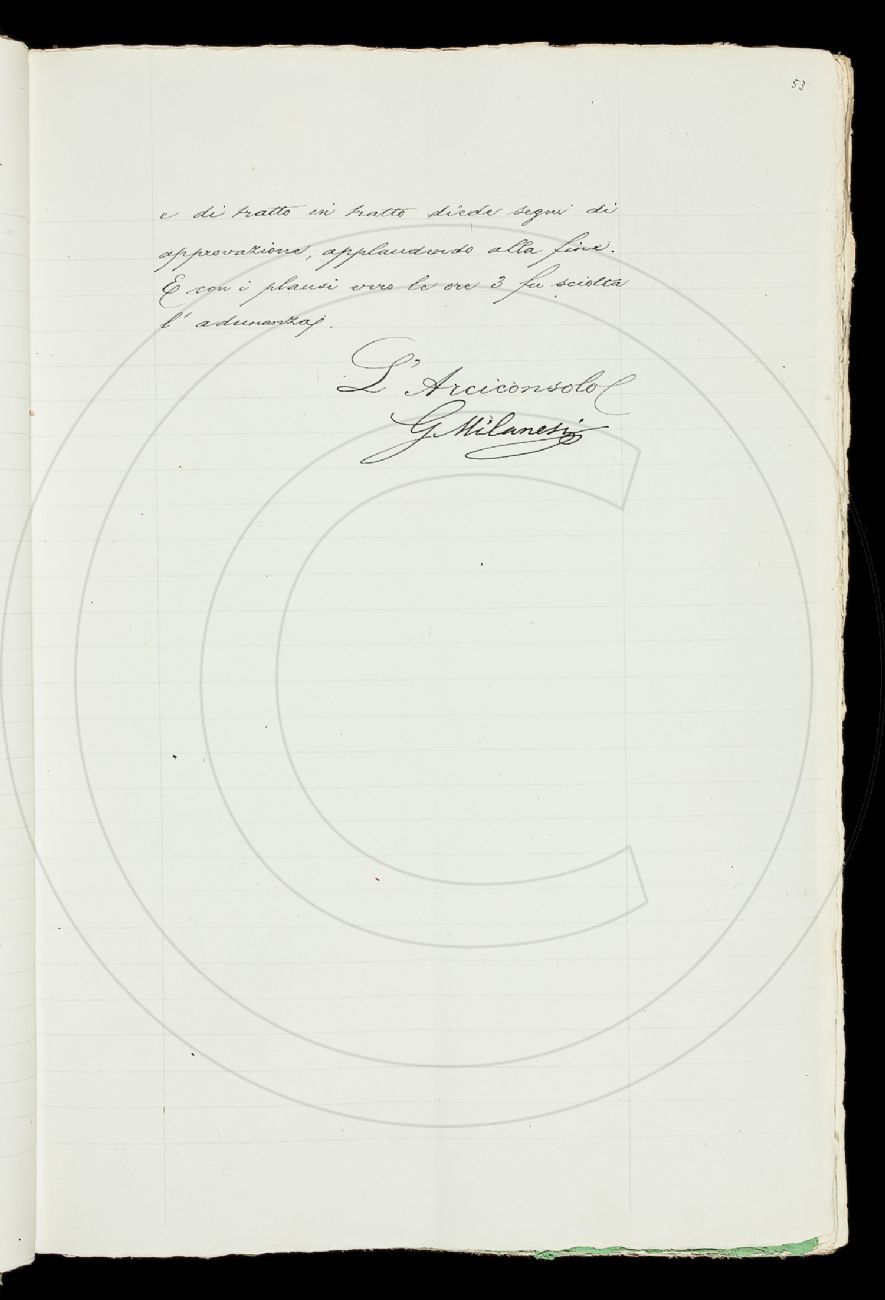 53
e di tratto in tratto diede segni di
approvazione, applaudendo alla fine.
E con i plausi verso le ore 3 fu sciolta
l'adunanza.
L'Arciconsolo
G Milanesi